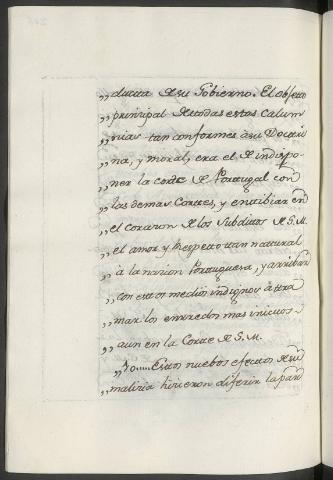 „ducta de su Gobierno. El objeto
„principal de todas estas calum
„nias tan conformes à su Doctri
„na, y moral, era el de indispo-
„ner la corte de Portugal con
„las demas Cortes, y entibiar en
„el corazon de los Subditos de S.M.
„el amor y respeto tan natural
„à la nacion Portuguesa, y arribar
„con estos medios indignos à tra
„mar los enrredos mas iniquos
„aun en la Corte de S.M.
„40..... Estos nuebos efectos de su
„malicia hicieron diferir la par